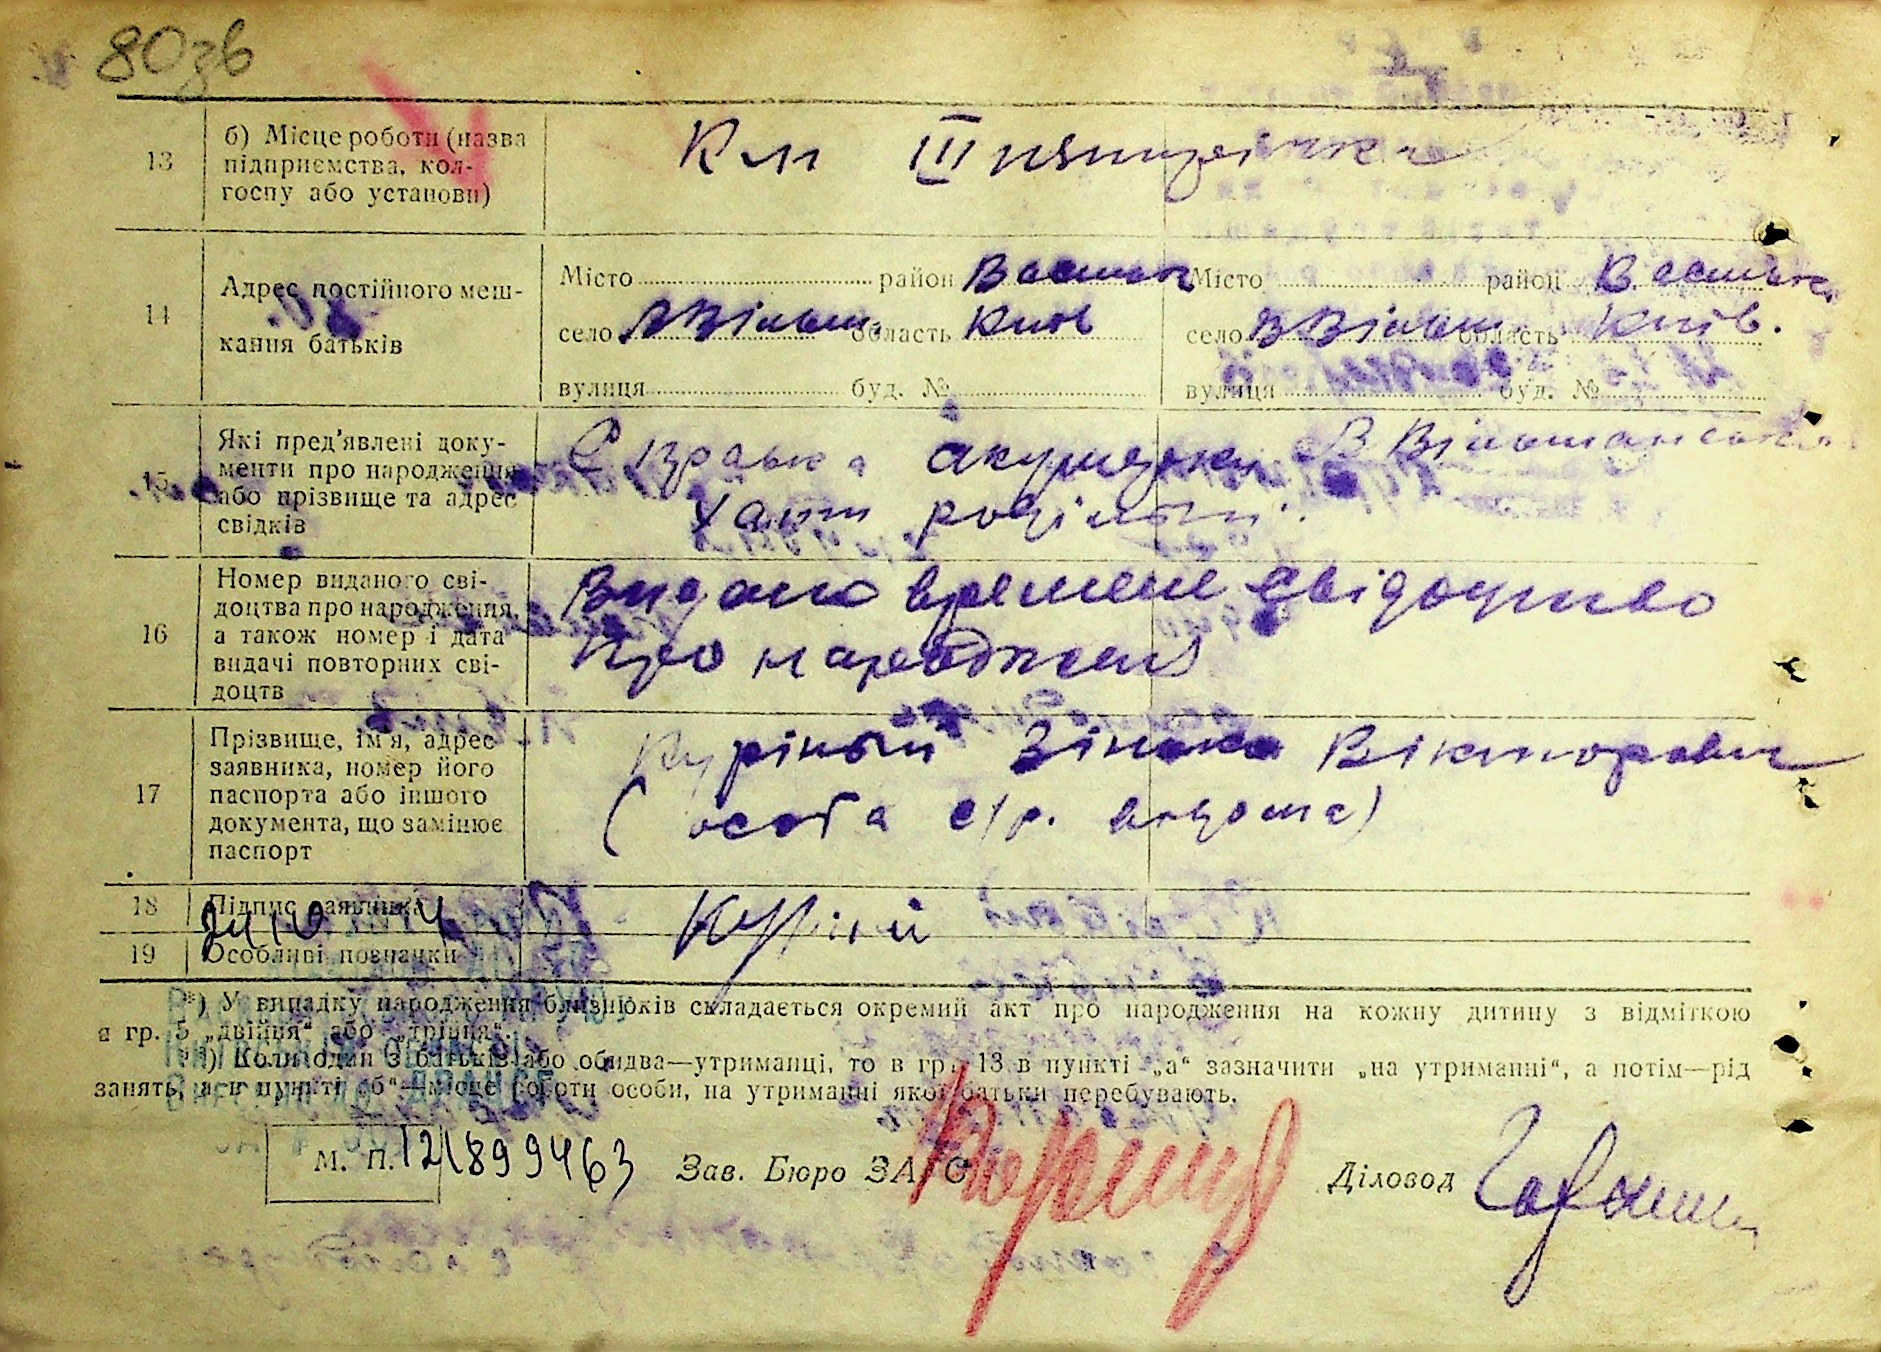 80зв
13
б) Місце роботи (назва
підприємства, кол-
госпу або установи)
III пятирічка
14
Адрес постійного меш-
кання батьків
Місто район Васильк Місто район Васильк.
село В Вільшан. область Київ село В Вільшан. область Київ.
вулиця буд. № вулиця буд. №
15
Які пред'явлені доку-
менти про народження
або прізвище та адрес
свідків
Справка акушерки В Вільшанської
Хати родільні.
16
Номер виданого сві-
доцтва про народження,
а також номер і дата
видачі повторних сві-
доцтв
Видано времене свідоцтво
Про народження
17
Прізвище, ім'я, адрес
заявника, номер його
паспорта або іншого
документа, що замінює
паспорт
Куріный Зінько Вікторович
(особа с/р. відома)
18
Підпис заявника
Куріний
19
Особливі позначки
*) У випадку народження близнюків складається окремий акт про народження на кожну дитину з відміткою
в гр. 5 „двійня“ або „трійня“.
**) Коли один з батьків або обидва—утриманці, то в гр. 13 в пункті „а“ зазначити „на утриманні“, а потім—рід
занять, а в пункті „б“—місце роботи особи, на утриманні якої батьки перебувають.
М. П. 121899463 Зав. Бюро ЗАГС Діловод